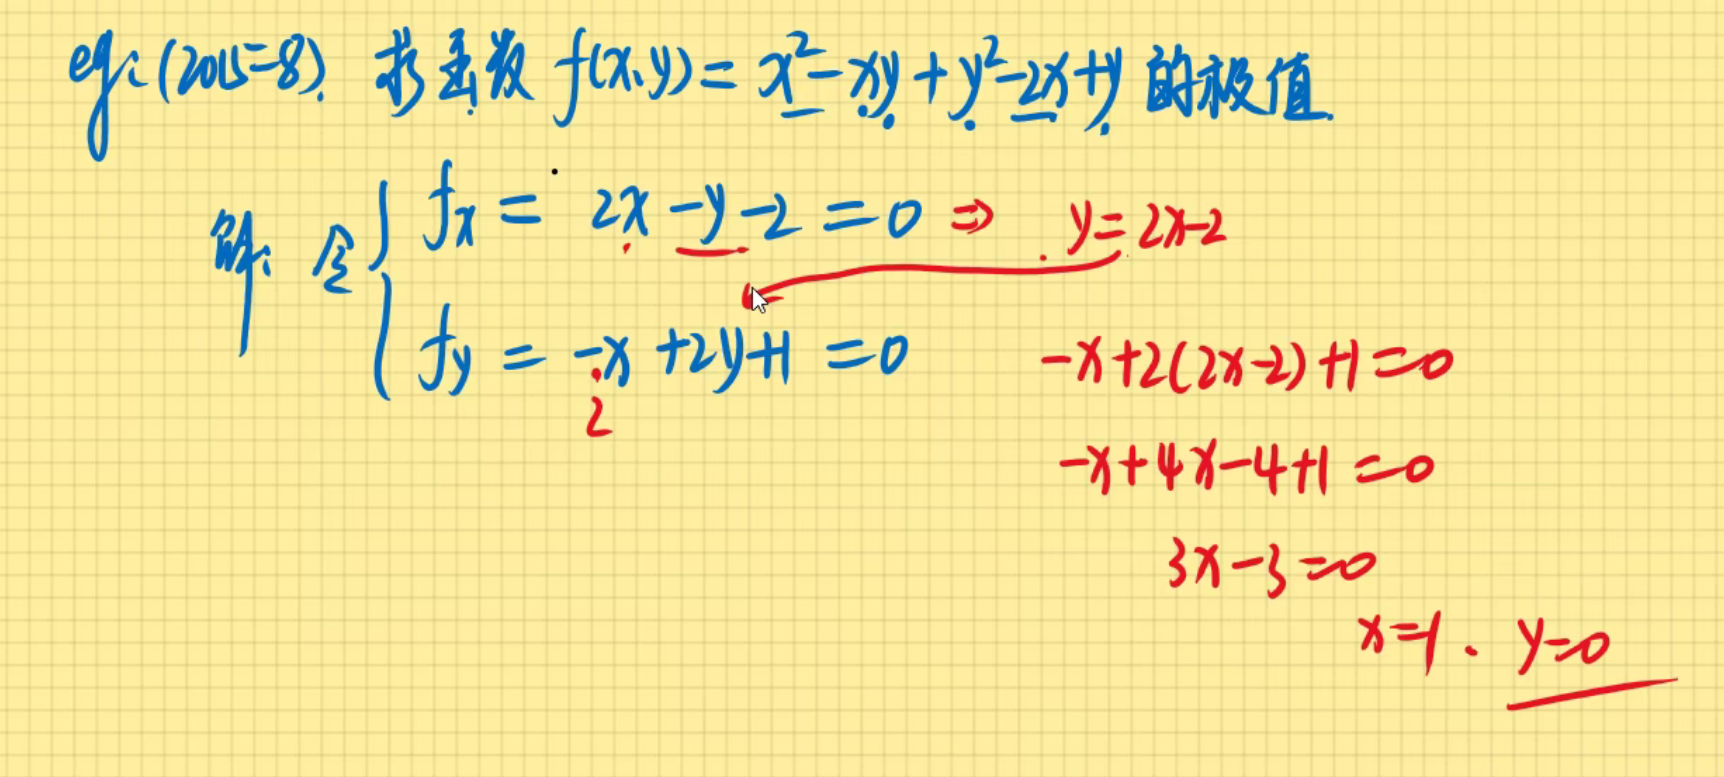 eg:(2015=8). 求函数 f(x,y)=x²-xy+y²-2x+y 的极值.
解: 令 { fx = 2x-y-2=0 ⇒ y=2x-2
fy = -x+2y+1=0 -x+2(2x-2)+1=0
2
-x+4x-4+1=0
3x-3=0
x=1. y=0